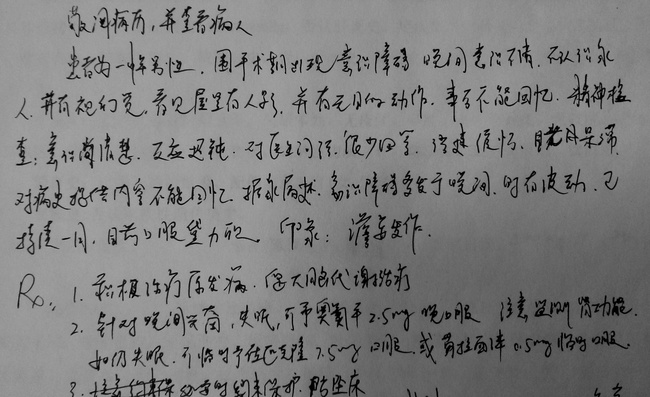 敬阅病历，并查看病人
患者为一老年男性，围手术期出现意识障碍 晚间意识不清，不认识家
人，并有视幻觉，看见屋里有人影，并有无目的动作，事后不能回忆。精神检
查：意识尚清楚，反应迟钝，对医生问话，很少回答，语速缓慢，目光呆滞
对病史提供内容不能回忆，据家属述，意识障碍多发于晚间，时有波动，已
持续一周，目前口服望力欣。印象：谵妄发作。
Rp: 1. 积极治疗原发病，促大脑代谢治疗
2. 针对晚间兴奋，失眠，可予奥氮平2.5mg 晚口服 注意监测肾功能
如仍失眠，可临时予佐匹克隆7.5mg口服，或劳拉西泮0.5mg临时口服
3. 必要时约束保护，防坠床